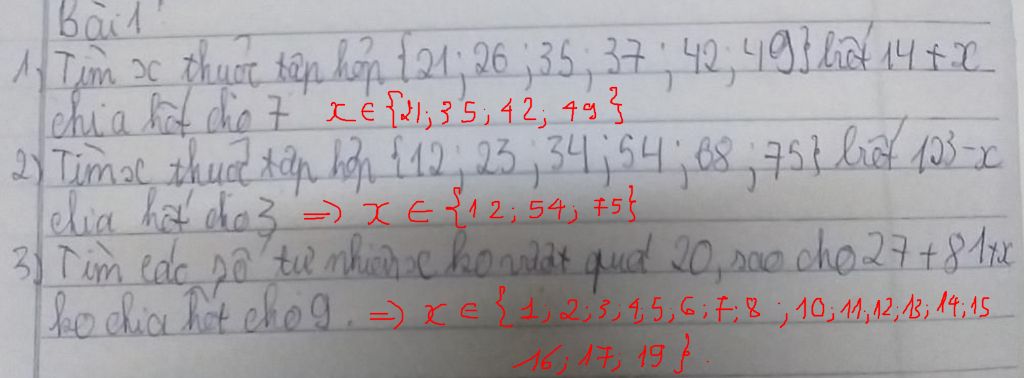 Bài 1
1) Tìm x thuộc tập hợp {21; 26; 35; 37; 42; 49} biết 14 + x
chia hết cho 7 x ∈ {21; 35; 42; 49}
2) Tìm x thuộc tập hợp {12; 23; 34; 54; 68; 75} biết 123 - x
chia hết cho 3 => x ∈ {12; 54; 75}
3) Tìm các số tự nhiên x ko vượt quá 20, sao cho 27 + 81 + x
ko chia hết cho 9. => x ∈ {1; 2; 3; 4; 5; 6; 7; 8; 10; 11; 12; 13; 14; 15
16; 17; 19}.